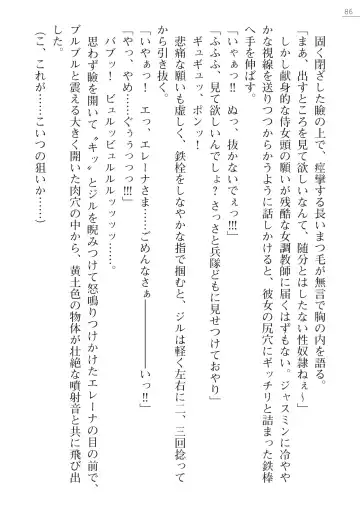 86
固く閉ざした瞼の上で、痙攣する長いまつ毛が無言で胸の内を語る。
「まあ、出すところを見て欲しいなんて、随分とはしたない性奴隷ねぇ〜」
しかし献身的な侍女頭の願いが残酷な女調教師に届くはずもない。ジャスミンに冷やや
かな視線を送りつつからかうように話しかけると、彼女の尻穴にギッチリと詰まった鉄棒
へ手を伸ばす。
「いゃぁっ!! ぬっ、抜かないでぇっ!!!」
「ふふふ、見て欲しいんでしょ? さっさと兵隊どもに見せつけておやり」
ギュギュッ、ポンッ!
悲痛な願いも虚しく、鉄栓をしなやかな指で掴むと、ジルは軽く左右に二、三回捻って
から引き抜く。
「いやぁっ! エっ、エレーナさま……ごめんなさぁ————いっ!!」
「やっ、やめ……ぐぅぅっっっ!!!」
バブッ! ビュルッビュルルルッッッッ……。
思わず瞼を開いて〝キッ〟とジルを睨みつけて怒鳴りつけかけたエレーナの目の前で、
ブルブルと震える大きく開いた肉穴の中から、黄土色の物体が壮絶な噴射音と共に飛び出
した。
(こ、これが……こいつの狙いか……)